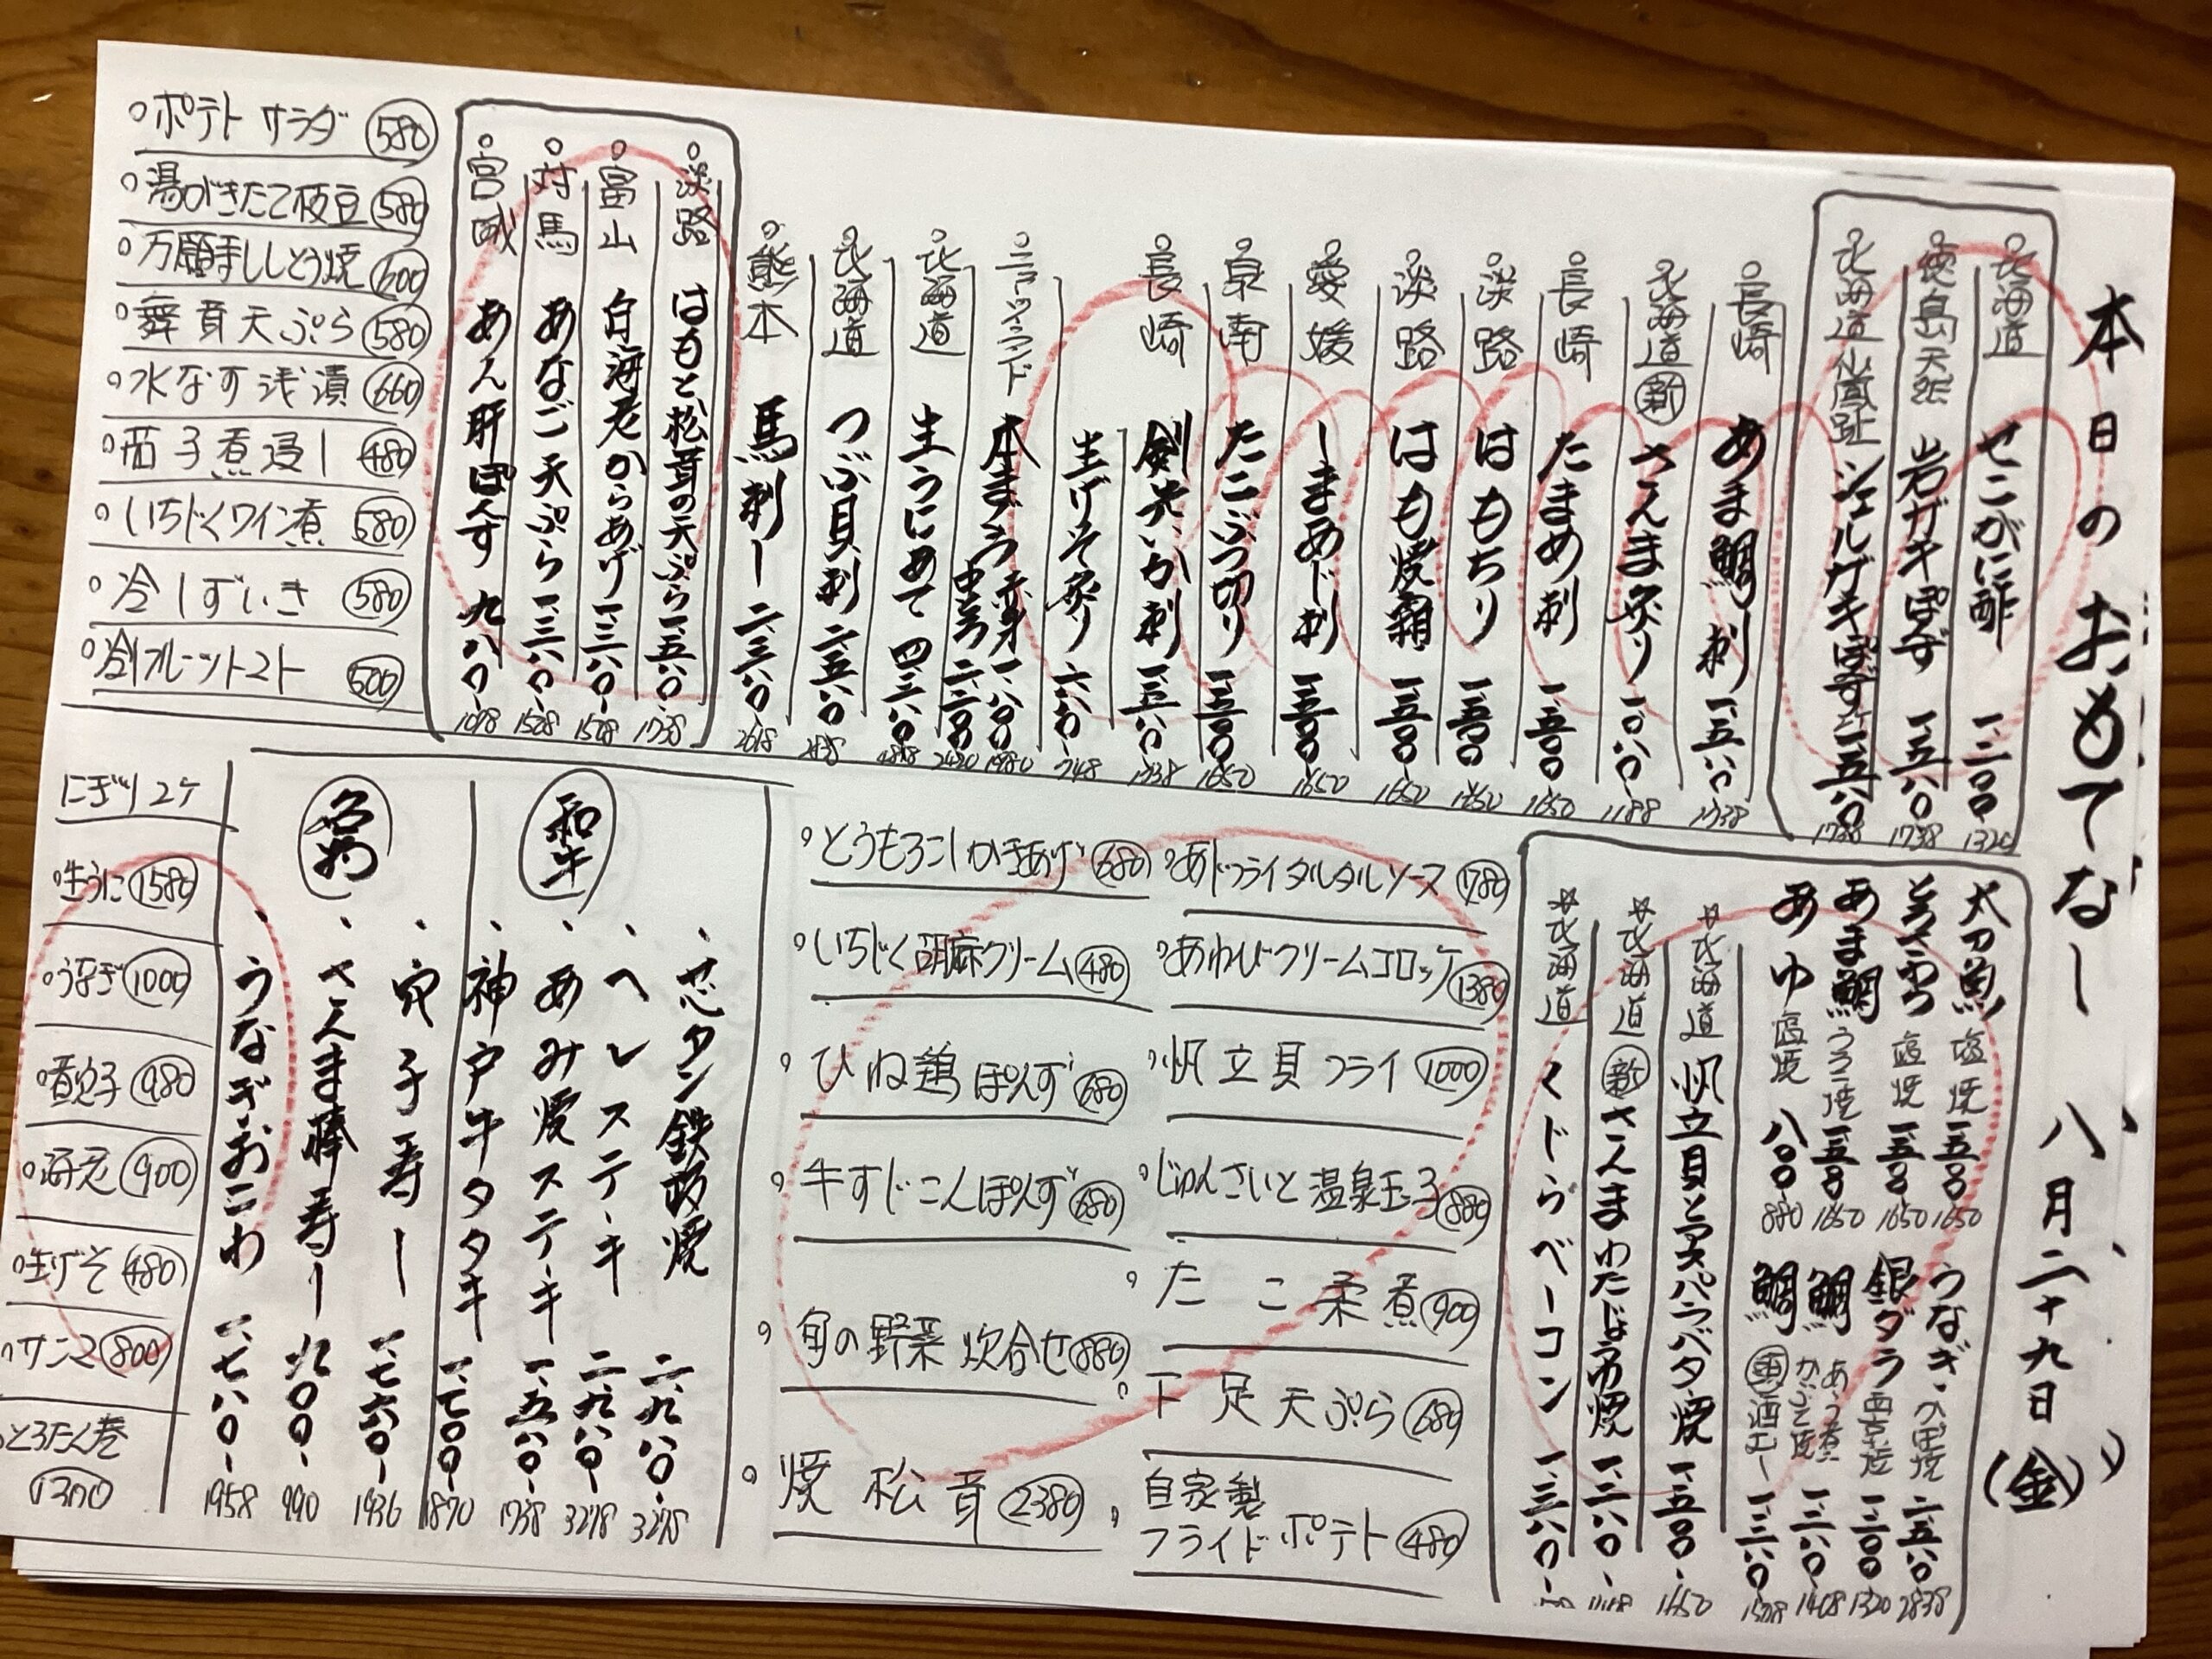 本日のおもてなし 八月二十九日(金)
北海道 せこがに酢 一、二〇〇 1320
徳島天然 岩ガキぽず 一、五八〇 1738
北海道仙鳳趾 シェルガキぽず 2ケ 一、五八〇 1738
長崎 あま鯛刺 一、五八〇 1738
北海道 新 さんま炙り 一、〇八〇 1188
長崎 たまめ刺 一、五〇〇 1650
淡路 はもちり 一、五〇〇 1650
淡路 はも焼霜 一、五〇〇 1650
愛媛 しまあじ刺 一、五〇〇 1650
泉南 たこぶつ切り 一、五〇〇 1650
長崎 剣先いか刺 一、五八〇 1738
生げそ炙り 六八〇 748
ニュージーランド 本まぐろ 赤身 一、八〇〇 1980
中とろ 二、二〇〇 2420
北海道 生うにあて 四、三八〇 4818
北海道 つぶ貝刺 二、五八〇 2838
熊本 馬刺し 二、三八〇 2618
淡路 はもと松茸の天ぷら 一、五八〇 1738
富山 白海老からあげ 一、三八〇 1508
対馬 あなご天ぷら 一、三八〇 1508
宮城 あん肝ぽんず 九八〇 1078
ポテトサラダ 580
湯がきたて枝豆 580
万願寺ししとう焼 600
舞茸天ぷら 580
水なす浅漬 660
茄子煮浸し 480
いちじくワイン煮 580
冷しずいき 580
冷フルーツトマト 500
太刀魚 塩焼 一、五〇〇 1650
とろさわら 塩焼 一、五〇〇 1650
あま鯛 うろこ焼 一、五〇〇 1650
あゆ 塩焼 八〇〇 880
うなぎ 二、五八〇 2838
銀ダラ 西京焼 一、二〇〇 1320
鯛 あら煮 かぶと焼 一、二八〇 1408
鯛 酒むし 一、三八〇 1508
北海道 帆立貝とアスパラバタ焼 一、五〇〇 1650
北海道 新 さんまわたじょうゆ焼
北海道 くじらベーコン 一、三八〇
あじフライタルタルソース 1780
あわびクリームコロッケ 1380
帆立貝フライ 1000
じゅんさいと温泉玉子 880
たこ柔煮 900
下足天ぷら 680
自家製
フライドポテト 480
とうもろこしかきあげ 680
いちじく胡麻クリーム 480
ひね鶏ぽんず 680
牛すじこんぽんず 680
旬の野菜炊合せ 880
焼松茸 2380
和牛
芯タン鉄板焼 二、九八〇 3278
ヘレステーキ 二、九八〇 3278
あみ焼ステーキ 一、五八〇 1738
神戸牛タタキ 一、七〇〇 1870
名物
穴子寿し 一、七六〇 1936
さんま棒寿し 九〇〇 990
うなぎおこわ 一、七八〇 1958
にぎり2ケ
生うに 1580
うなぎ 1000
煮穴子 980
海老 900
生げそ 480
サンマ 800
とろたく巻
1300